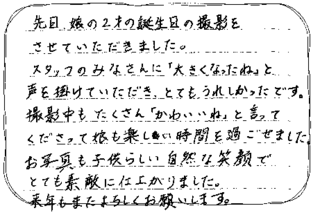 先日、娘の2才の誕生日の撮影を
させていただきました。
スタッフのみなさんに「大きくなったね」と
声を掛けていただき、とてもうれしかったです。
撮影中もたくさん「かわいいね」と言って
くださって娘も楽しい時間を過ごせました。
お写真も子供らしい自然な笑顔で
とても素敵に仕上がりました。
来年もまたよろしくお願いします。